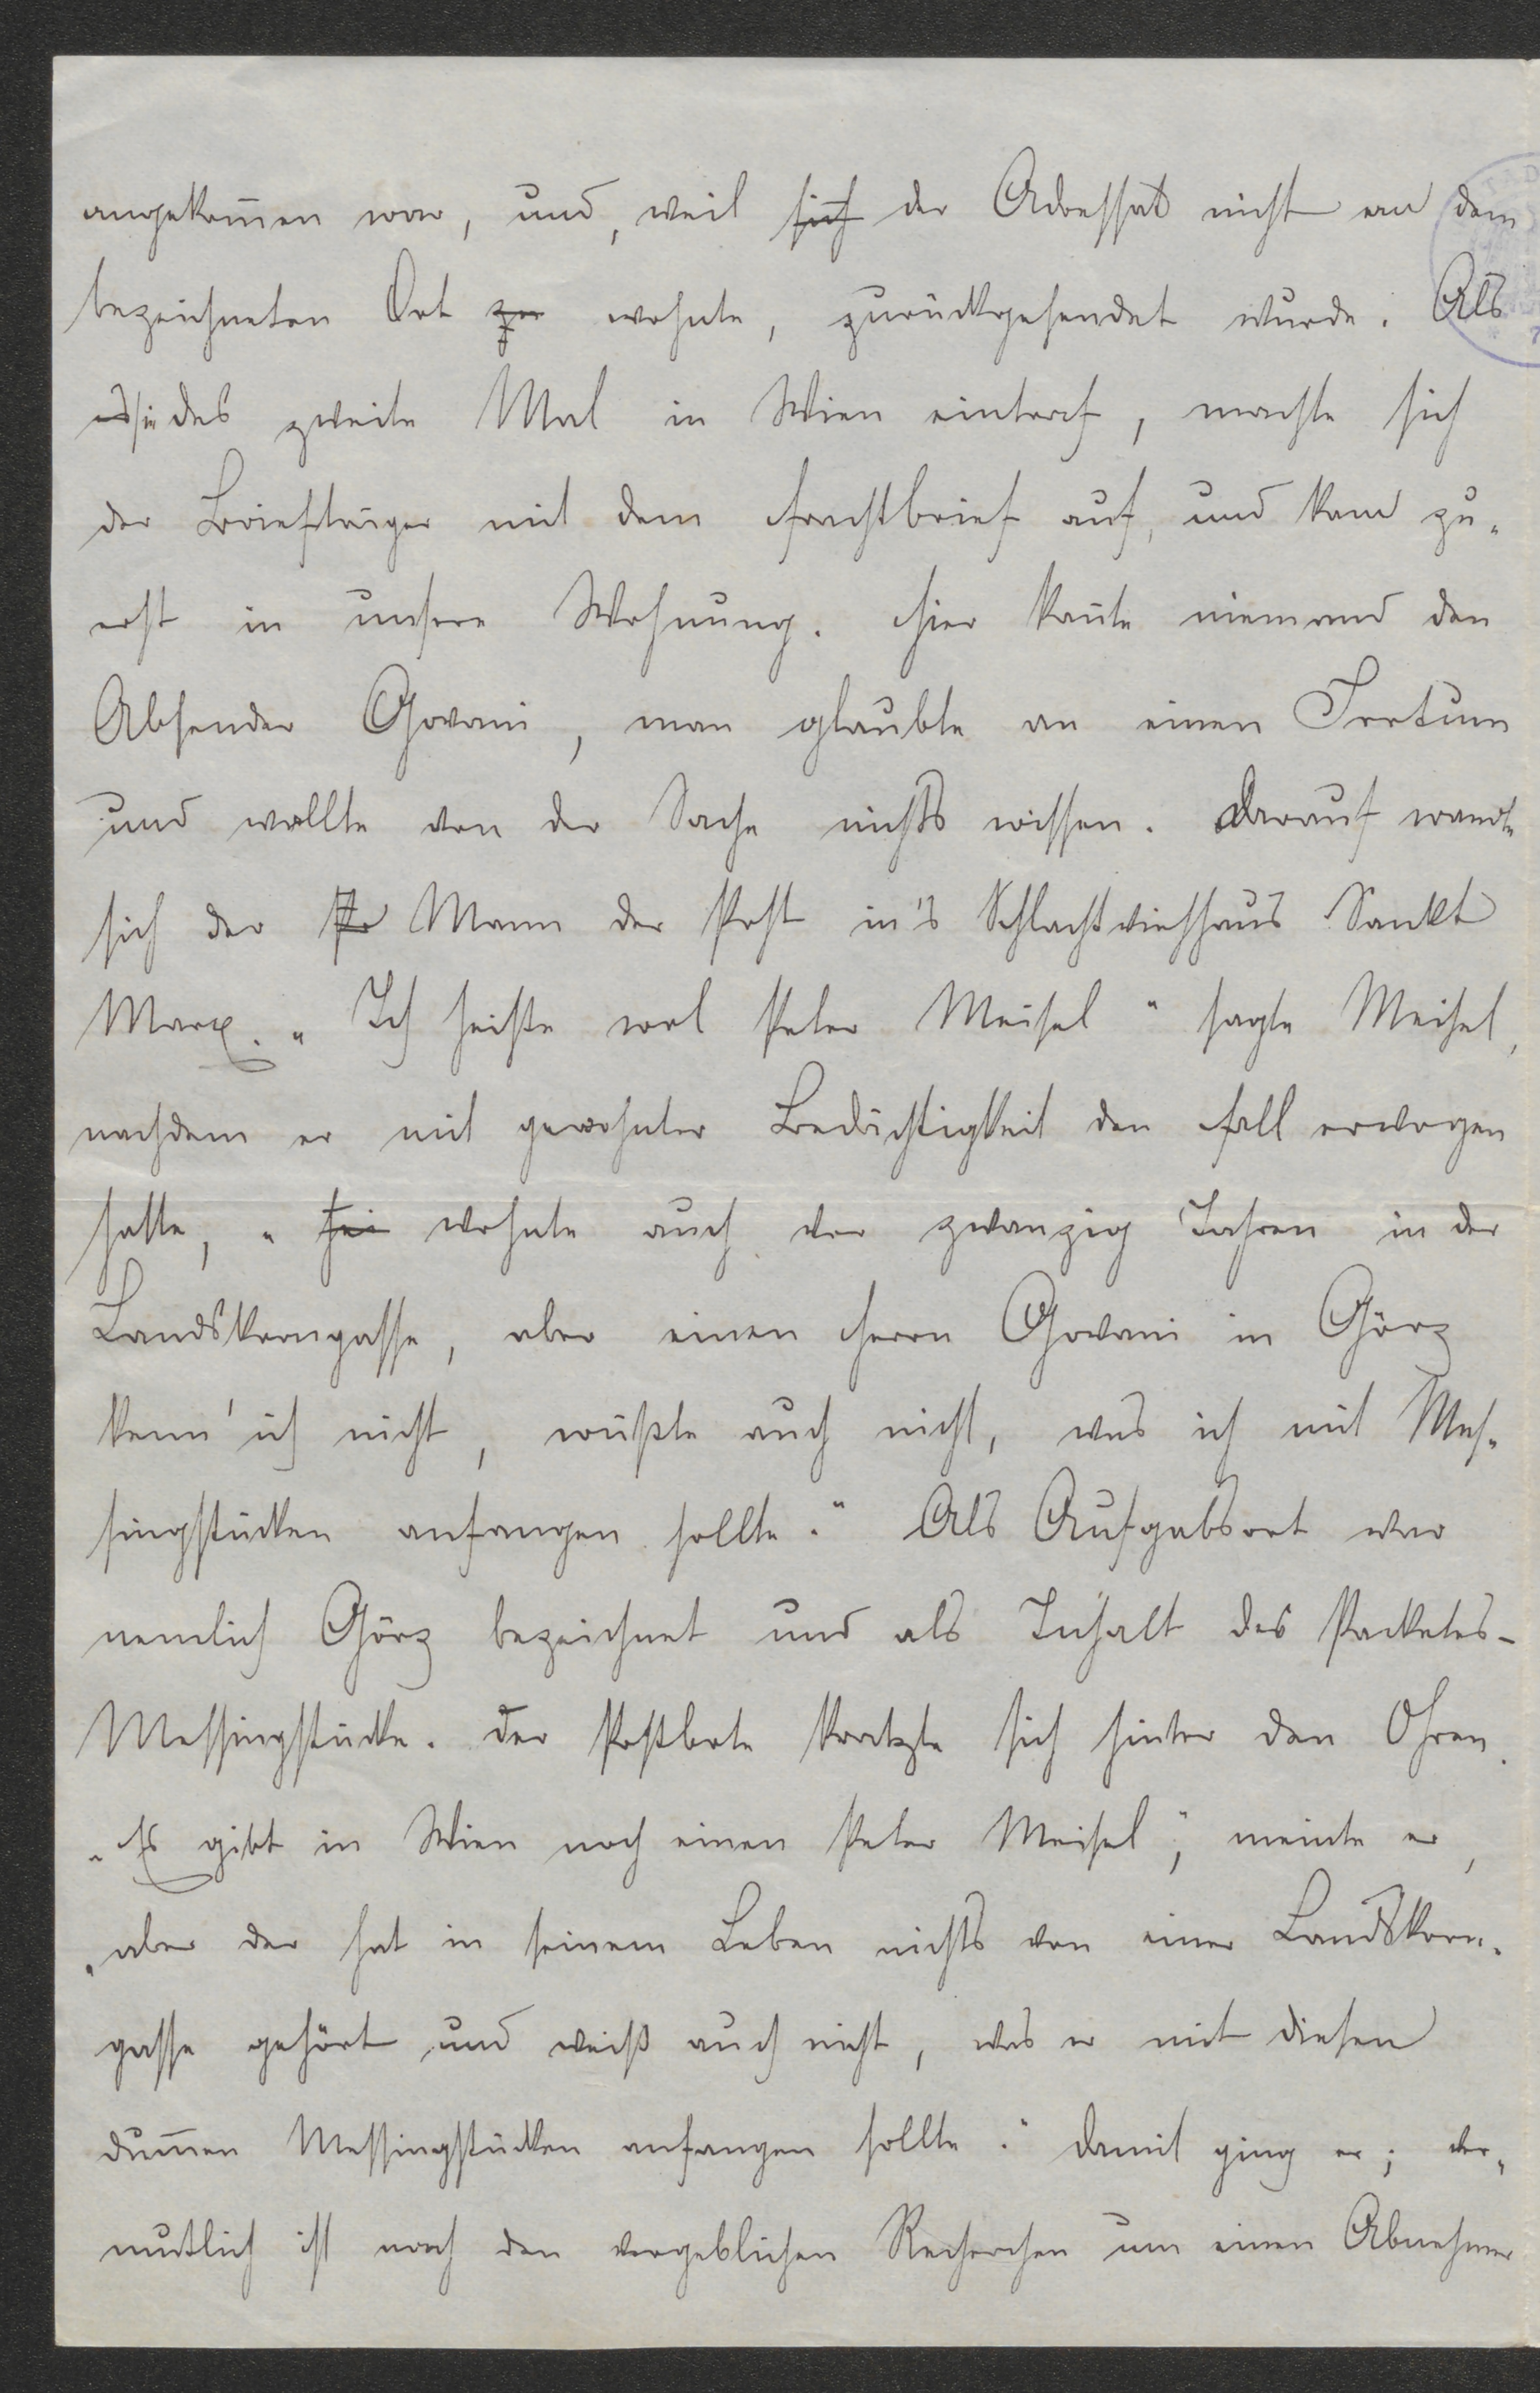 angekom̄en war, und, weil sich der Adressat nicht an dem
bezeichneten Ort zu wohnte, zurückgesendet wurde. Als
es sie das zweite Mal in Wien eintraf, machte sich
der Briefträger mit dem Frachtbrief auf, und kam zu-
erst in unsere Wohnung. Hier kan̄te niemand den
Absender Govani, man glaubte an einen Irrtum
und wollte von der Sache nichts wissen. Darauf wandte
sich der Po Mann der Post in's Schlachtviehhaus Sankt
Marx. „Ich heiße wol Peter Meisel" sagte Meisel,
nachdem er mit gewohnter Bedächtigkeit den Fall erwogen
hatte, „ wohnte auch vor zwanzig Jahren in der
Landskrongasse, aber einen Herrn Govani in Görz
kenn' ich nicht, wüßte auch nicht, was ich mit Mes-
singstücken anfangen sollte." Als Aufgabsort war
nemlich Görz bezeichnet und als Inhalt des Packetes-
Messingstücke. Der Postbote kratzte sich hinter den Ohren.
„Es gibt in Wien noch einen Peter Meisel", meinte er,
„aber der hat in seinem Leben nichts von einer Landskron-
gasse gehört und weiß auch nicht, was er mit diesen
dum̄en Messingstücken anfangen sollte." Damit ging er; ver-
mutlich ist nach den vergeblichen Recherchen um einen Abnehmer